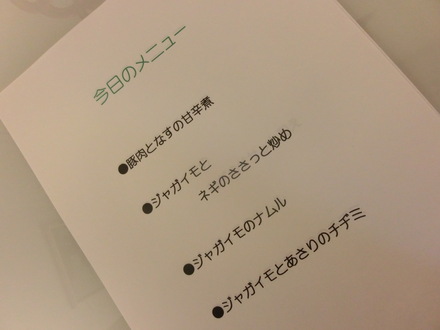 今日のメニュー
●豚肉となすの甘辛煮
●ジャガイモと
ネギのささっと炒め
●ジャガイモのナムル
●ジャガイモとあさりのチヂミ